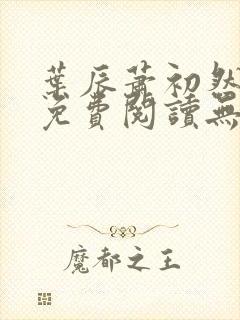 葉辰蕭初然
免費閱讀無
魔都之王